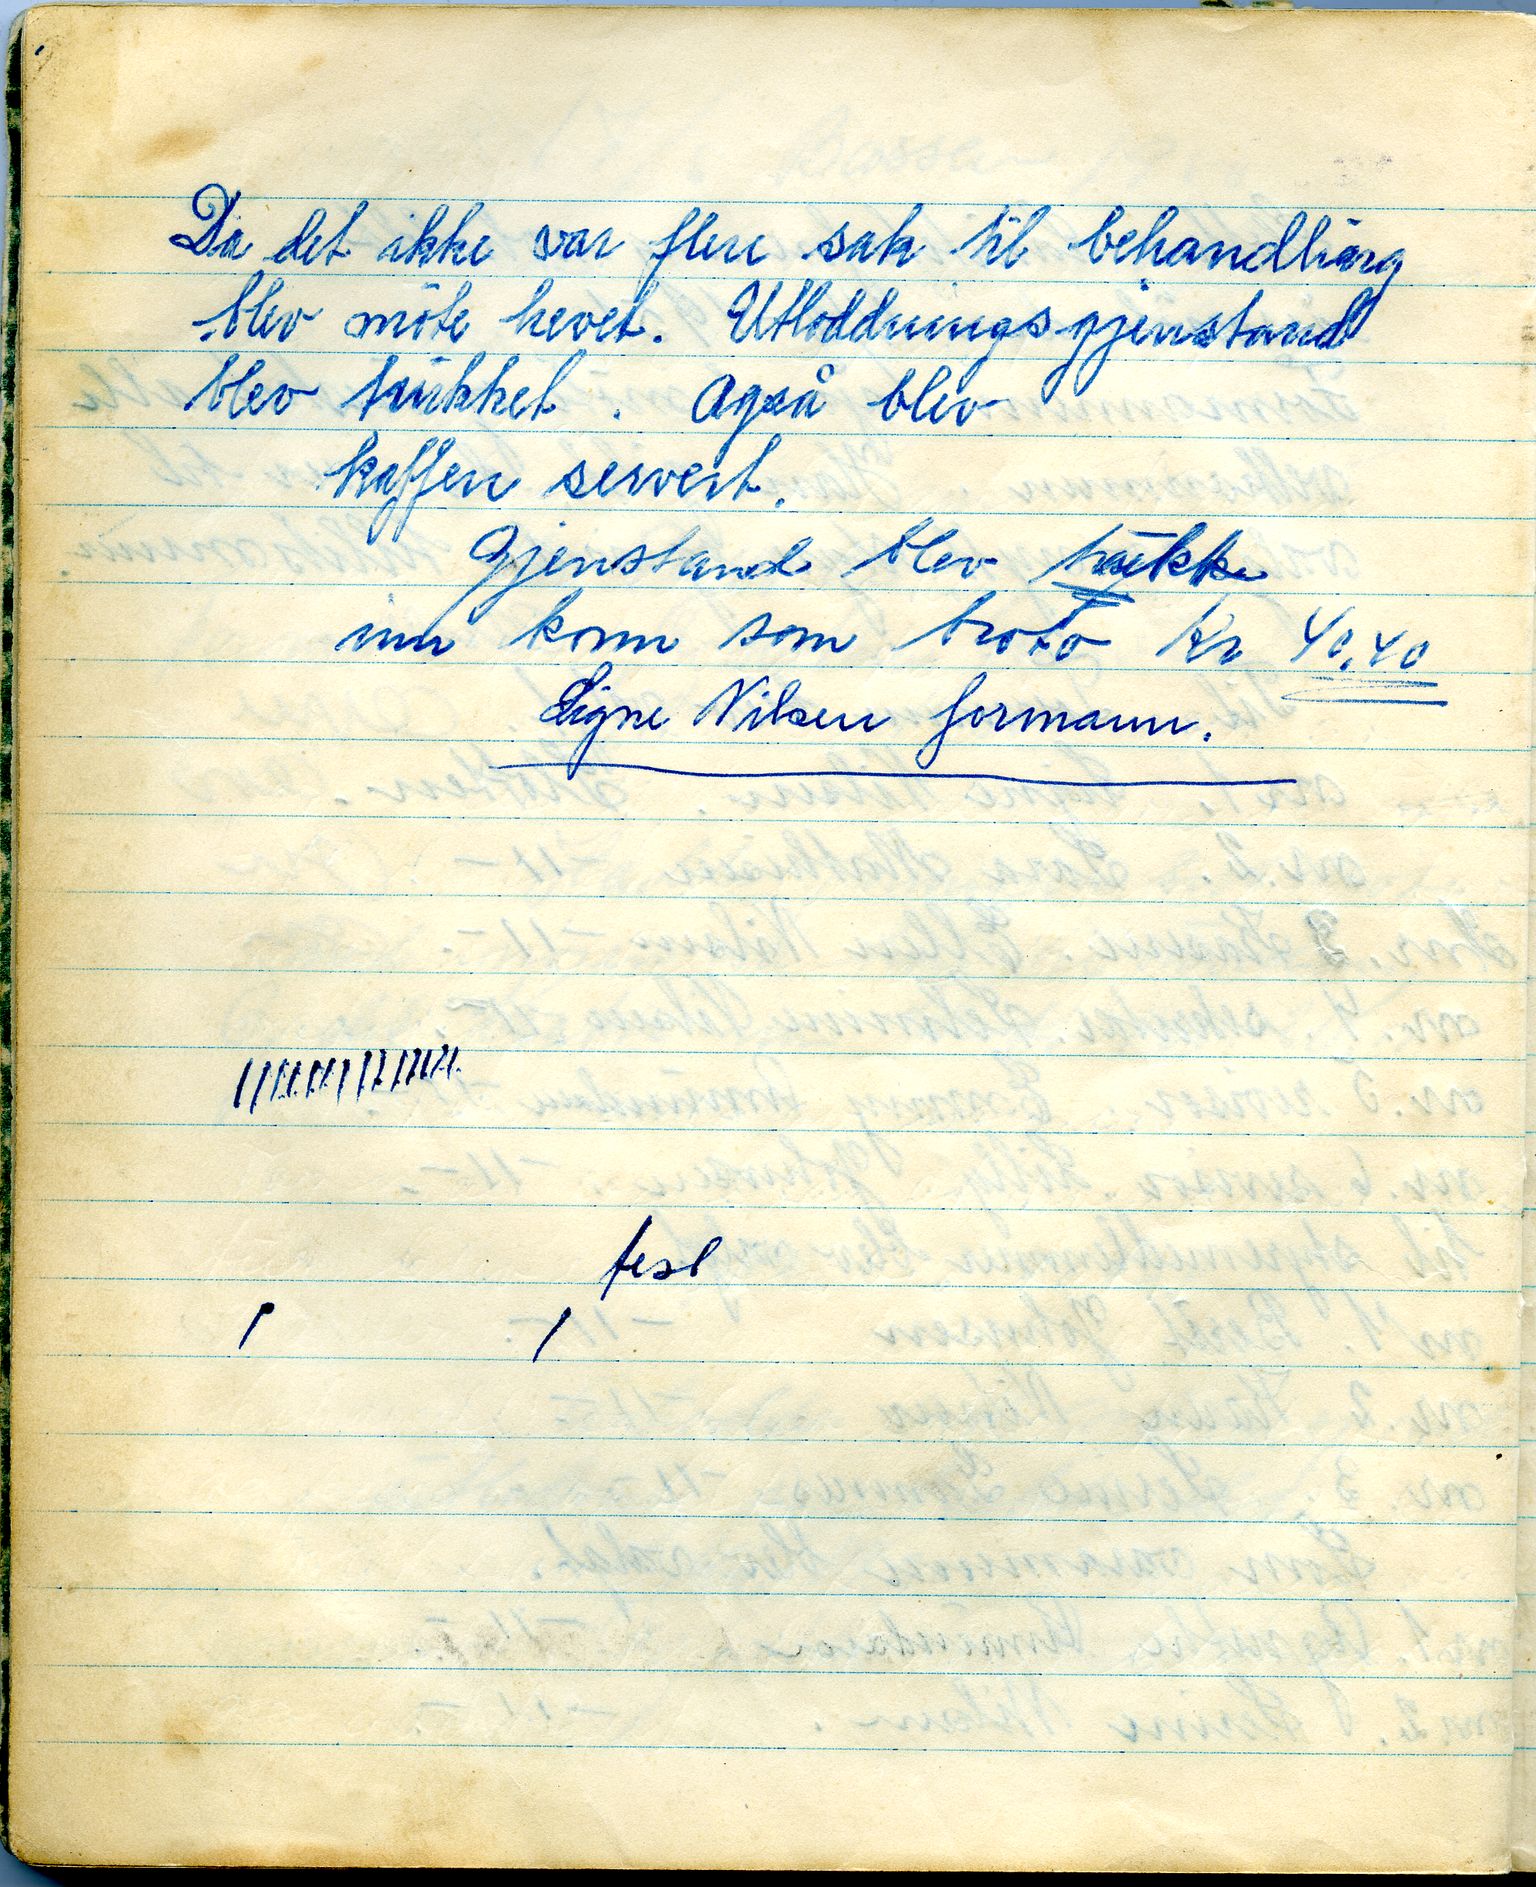 Da det ikke var flere sak til behandling
blev möte hevet. Utloddningsgjenstand
blev trükket. Også blev
kaffen servert.
Gjenstand blev trükke
inn komm som broto Kr 40,40
Signe Nilsen formann.
fest